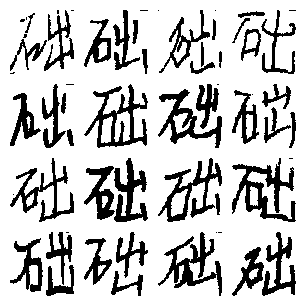 础础础础
础础础础
础础础础
础础础础